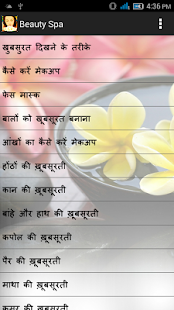 4:36 PM
Beauty Spa
खुबसुरत दिखने के तरीके
कैसे करें मेकअप
फेस मास्क
बालों को खूबसूरत बनाना
आंखों का कैसे करें मेकअप
होंठों की ख़ूबसूरती
कान की ख़ूबसूरती
बांहे और हाथ की ख़ूबसूरती
कपोल की ख़ूबसूरती
पैर की ख़ूबसूरती
माथा की ख़ूबसूरती
कमर की ख़ूबसूरती